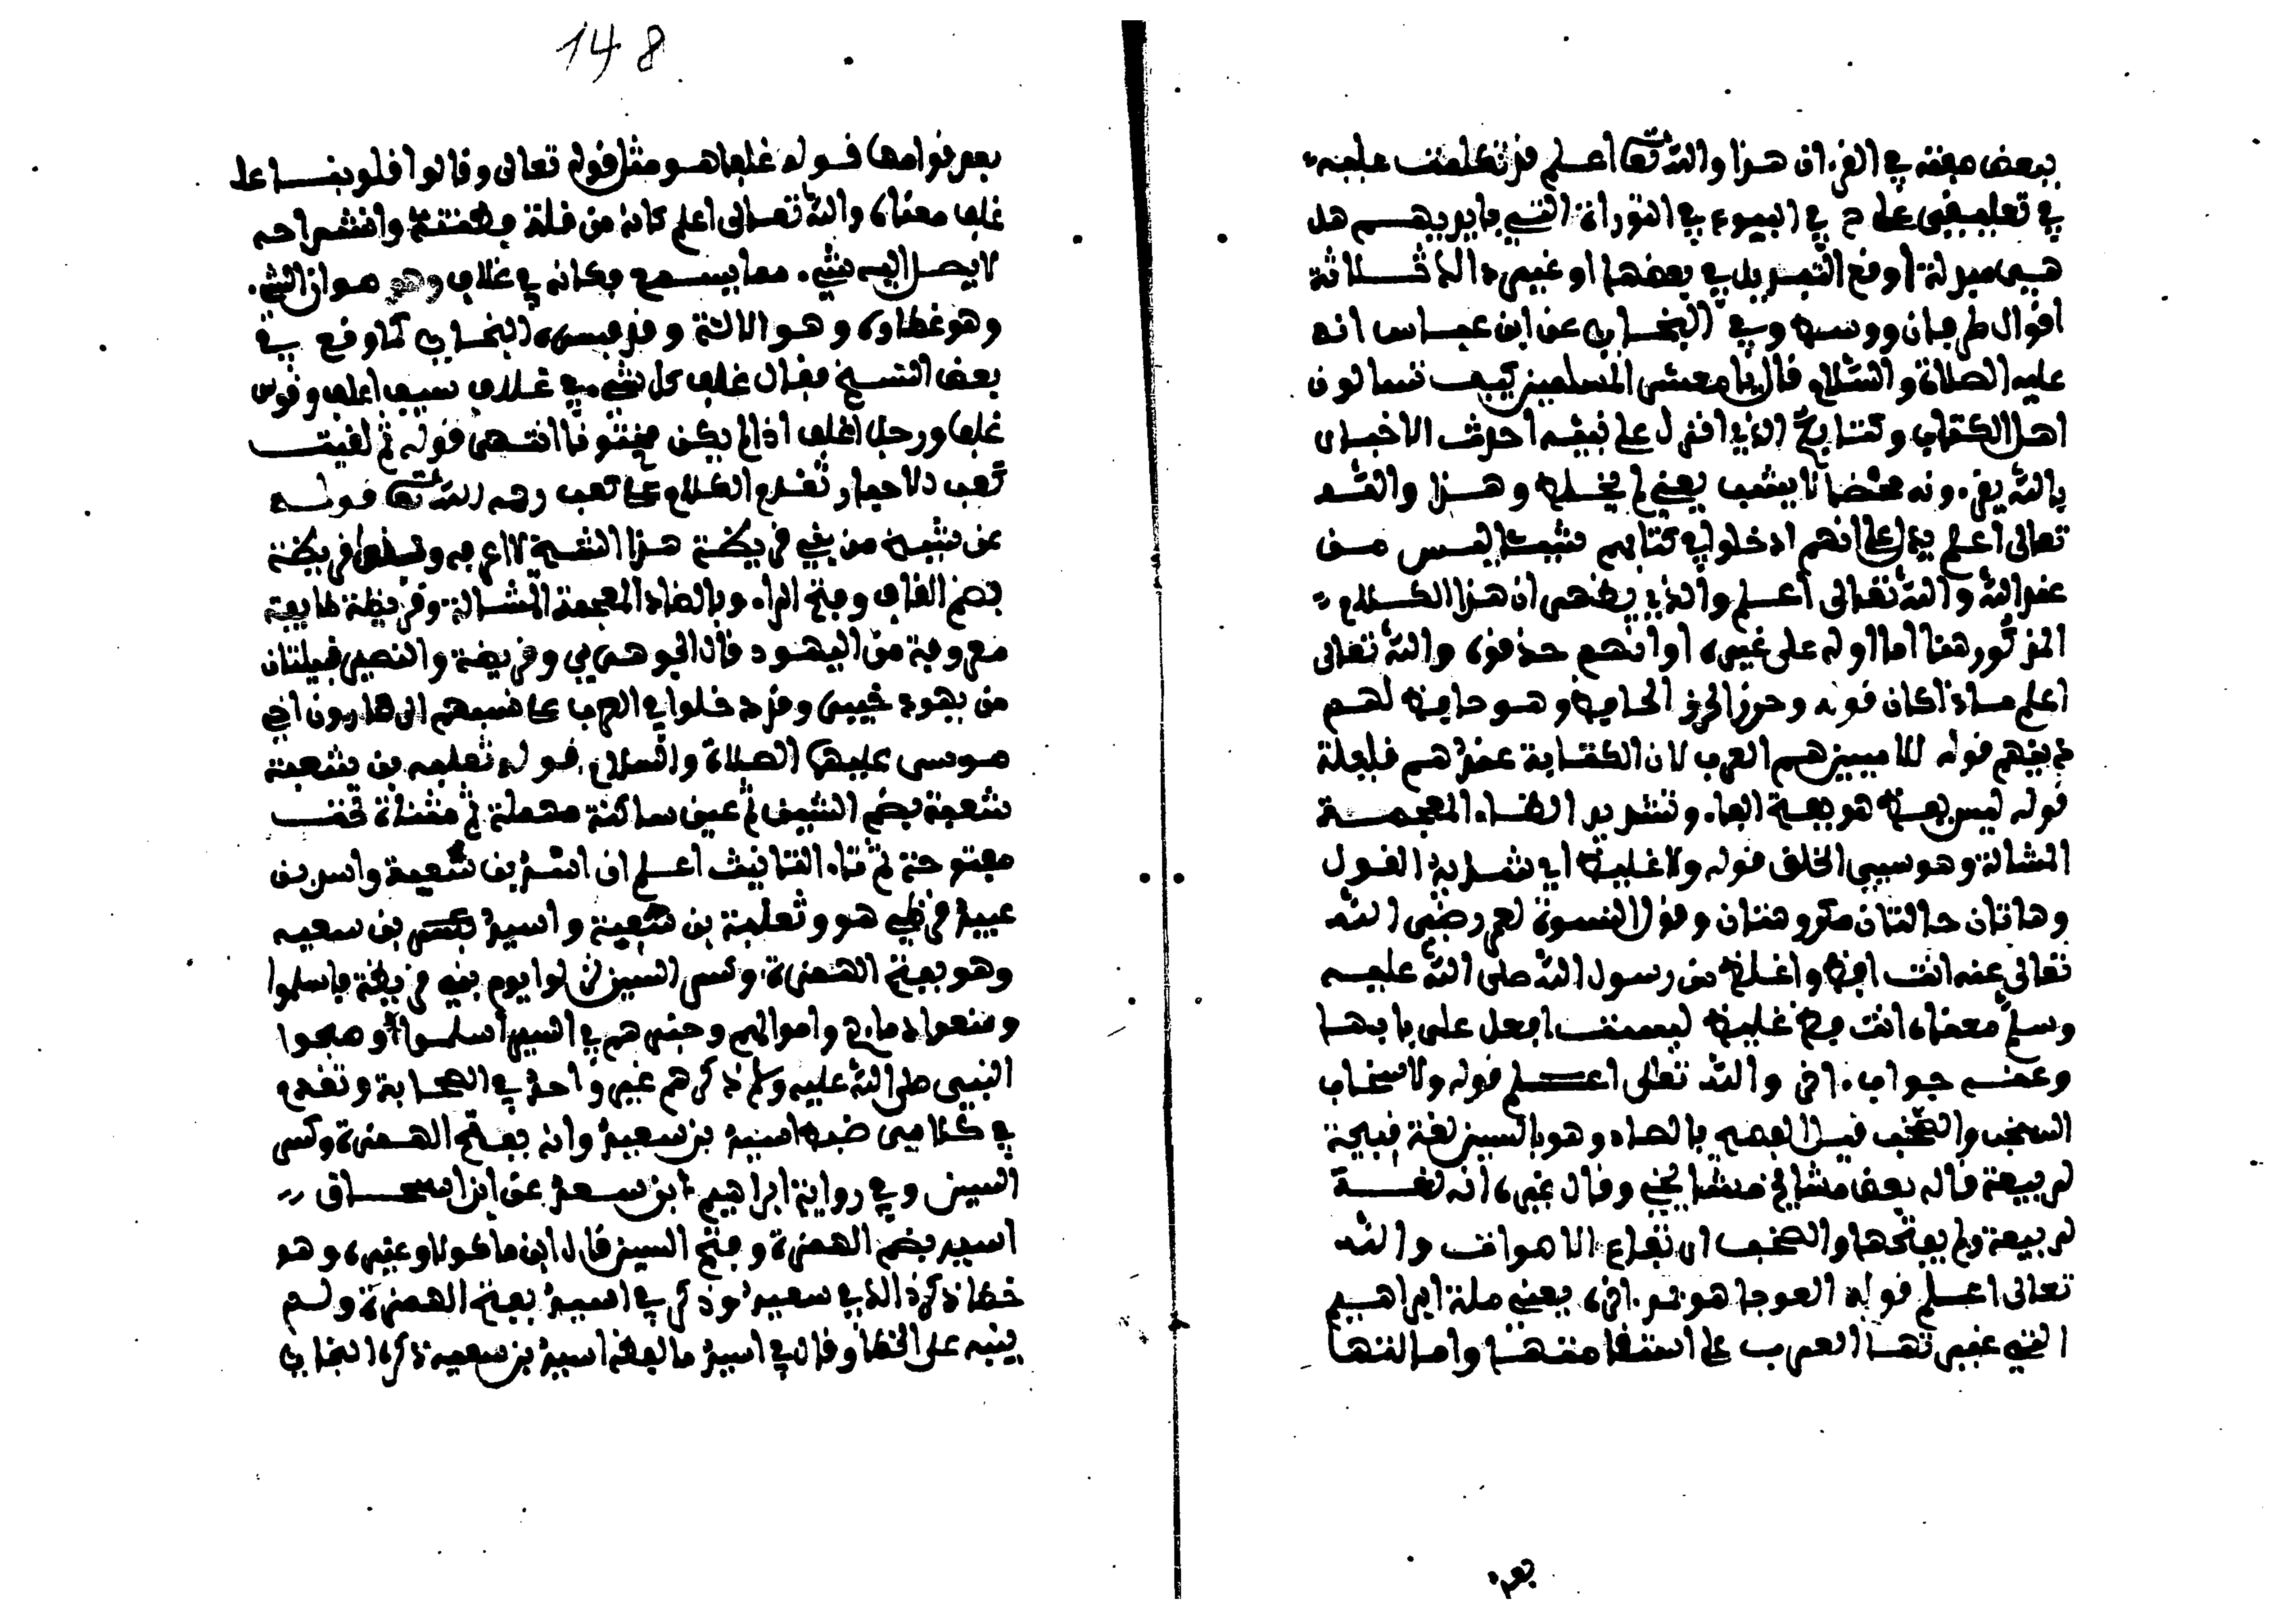 ببعض صفته في القرءان هذا والله تعا اعلم قد تكلمت عليه
في تعليقي على خ في البيوع في التوراة التي بايديهم هل
هي مبدلة او وقع التبديل في بعضها او غير ذالك ثلاثة
اقوال طرفان ووسط وفي البخاري عن ابن عباس انه
عليه الصلاة والسلام قال يا معشر المسلمين كيف تسالون
اهل الكتاب وكتابكم الذي انزل على نبيه احدث الاخبار
بالله يقرءونه محضا لم يشب يعني لم يخلط وهذا والله
تعالى اعلم يدل على انهم ادخلوا في كتابهم شيئا ليس من
عند الله والله تعالى اعلم والذي يظهر ان هذا الكلام
المذكور هنا اما اوله على غيره او انهم حذفوه والله تعالى
اعلم ماذا كان قوله وحرزا الحرز الحافظ وهو حافظ لهم
دينهم قوله للاميين هم العرب لان الكتابة عندهم قليلة
قوله ليس بفظ هو بفتح الفاء وتشديد الظاء المعجمة
المشالة وهو سيئ الخلق قوله ولا غليظ اي شديد القول
وهاتان حالتان مكروهتان وقول النسوة لعمر رضي الله
تعالى عنه انت افظ واغلظ من رسول الله صلى الله عليه
وسلم معناه انت فظ غليظ ليست افعل على بابها
وعنه جواب ءاخر والله تعالى اعلم قوله ولا سخاب
السخب والصخب قيل الفصيح بالصاد وهو بالسين لغة قبيحة
لربيعة قاله بعض مشايخ مشايخي وقال غيره انه لغة
لربيعة ولم يقبحها والصخب ارتفاع الاصوات والله
تعالى اعلم قوله العوجا هو ءاخره يعني ملة ابراهيم
التي غيرتها العرب على استقامتها وامالتها
بعد
148
بعد قوامها قوله غلفا هو مثل قوله تعالى وقالوا قلوبنا
غلف معناه والله تعالى اعلم كانه من قلة فطنته وانشراحه
لا يصل اليه شيء مما يسمع فكانه في غلاف وهو صوان الشيء
وهو غطاوه وهو الالة وقد فسره البخاري كما وقع في
بعض النسخ فقال غلف كل شيء في غلاف سيف اغلف وقوس
غلفا ورجل اغلف اذا لم يكن مختونا انتهى قوله ثم لقيت
كعب الاحبار تقدم الكلام على كعب رحمه الله تعا قوله
عن شيخ من بني قريظة هذا الشيخ لا اعرفه وتقدم قريظة
بضم القاف وفتح الراء وبالظاء المعجمة المشالة وقريظة طايفة
معروفة من اليهود قال الجوهري وقريظة والنضير قبيلتان
من يهود خيبر وقد دخلوا في العرب على نسبهم الى هارون اخي
موسى عليهما الصلاة والسلام قوله ثعلبه بن شعية
شعية بضم الشين ثم عين ساكنة مهملة ثم مثناة تحت
مفتوحة ثم تاء التانيث اعلم ان اسد بن شعية واسد بن
عبيد قرظي هو وثعلبة بن شعية واسيد بن سعيه
وهو بفتح الهمزة وكسر السين نزلوا يوم بني قريظة فاسلموا
ومنعوا دماءهم واموالهم وخبرهم في السير اسلموا وصحبوا
النبي صلى الله عليه وسلم ذكرهم غير واحد في الصحابة وتقدم
في كلامي ضبط اسيد بن سعية وانه بفتح الهمزة وكسر
السين وفي رواية ابراهيم ابن سعد عن ابن اسحاق
اسيد بضم الهمزة وفتح السين قال ابن ماكولا وغيره وهو
خطا ذكره الذهبي سعيد وذكر في اسيد بفتح الهمزة ولم
ينبه على الخطا وقال في اسيد ما لفظه اسيد بن سعيه ذكره البخاري